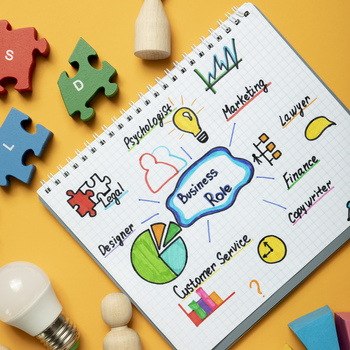 S
D
L
Psychologist
Marketing
Lawyer
Legal
Business
Role
Finance
Designer
Copywriter
Customer Service
?